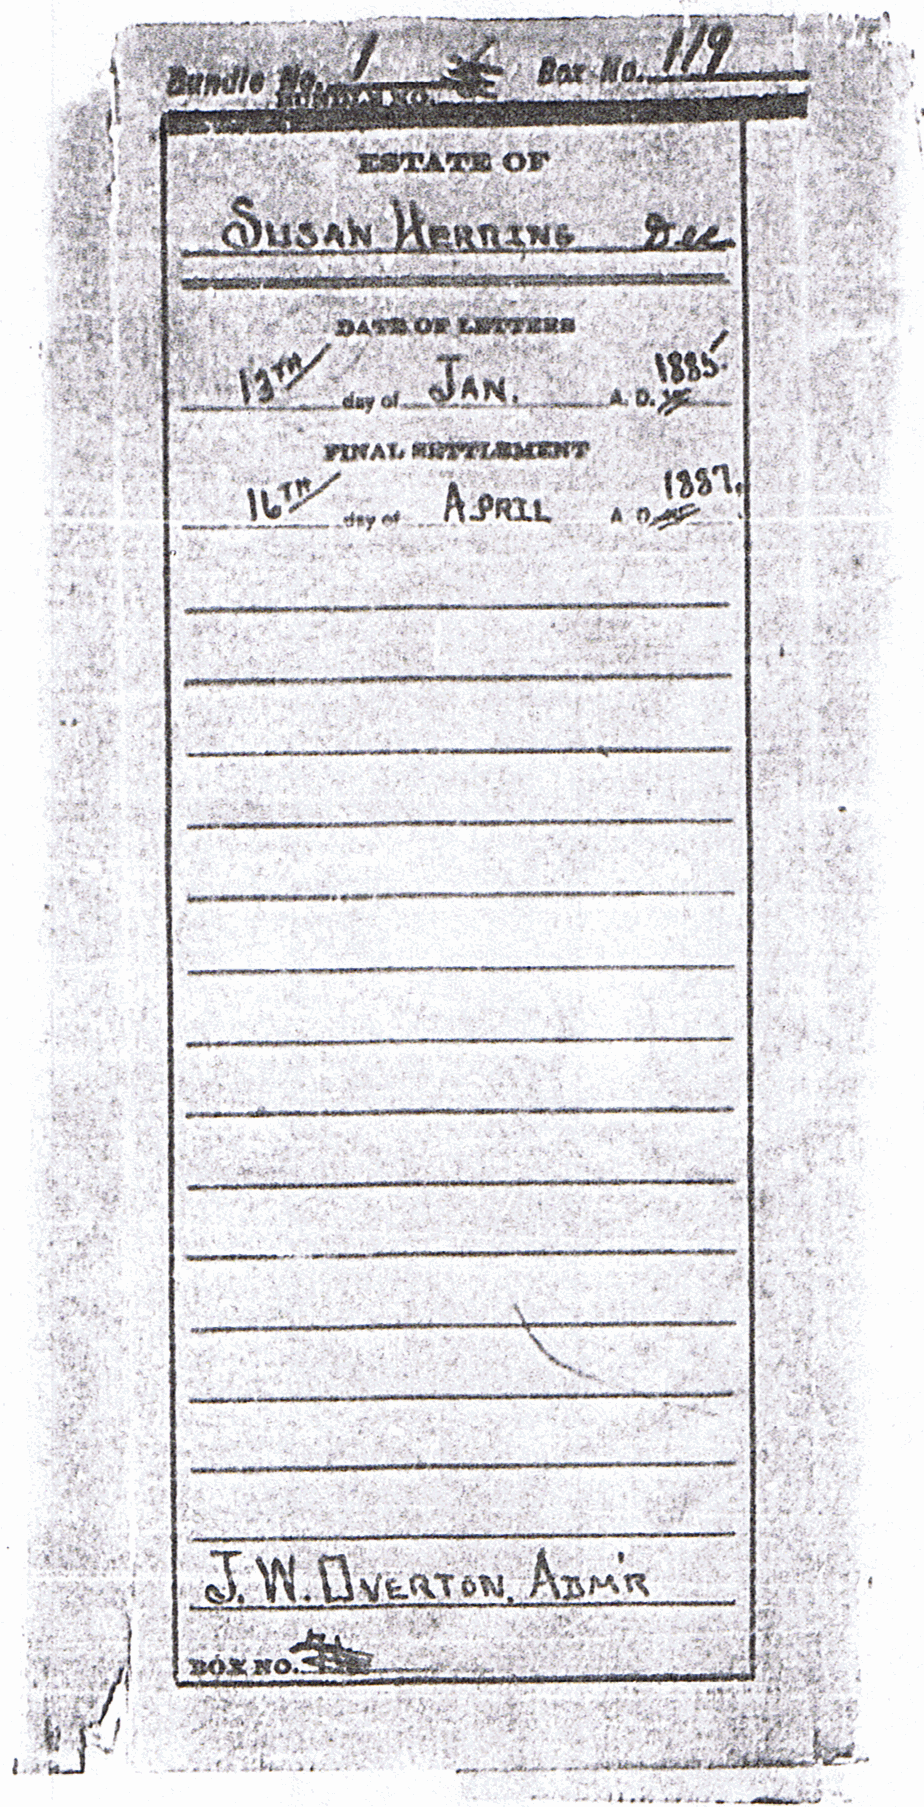 Bundle No. 1 Box No. 119
BUNDLE NO.
ESTATE OF
SUSAN HERRING Dec.
DATE OF LETTERS
13TH day of JAN. A. D. 1885
FINAL SETTLEMENT
16TH day of APRIL A. D. 1887.
J. W. OVERTON, ADM'R
BOX NO.